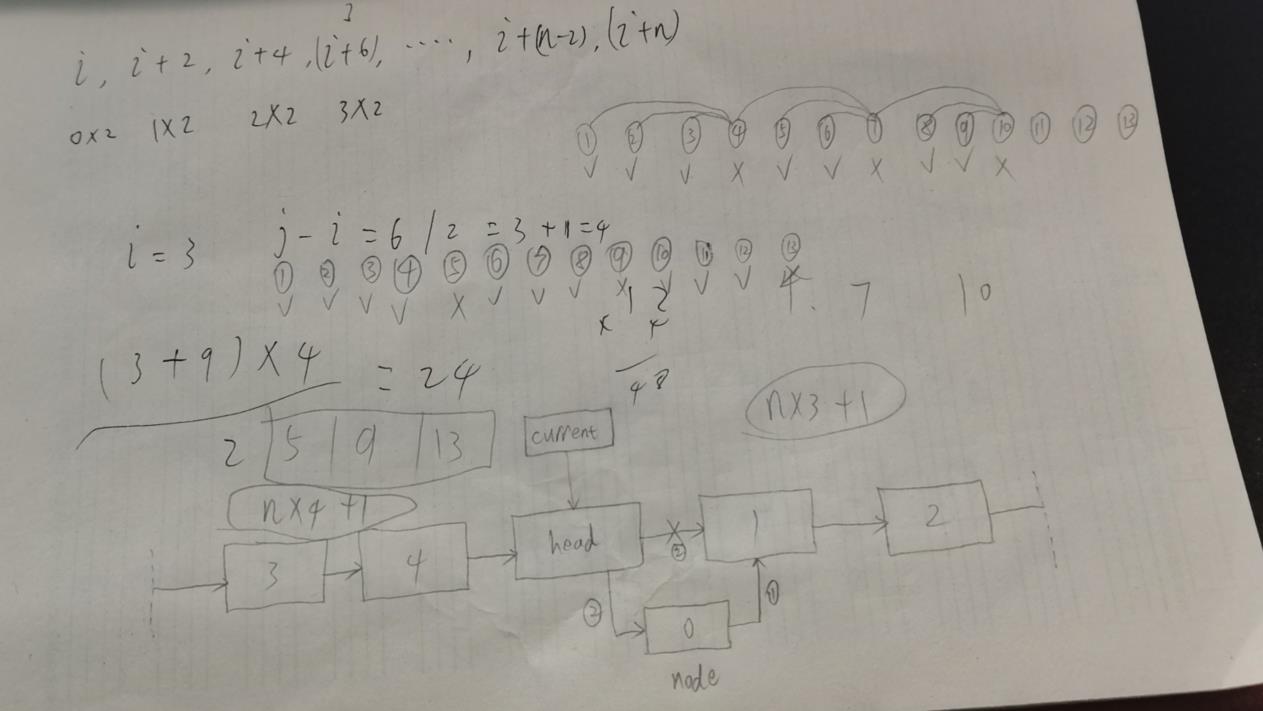 3
i, i+2, i+4, (i+6), ...., i+(n-2), (i+n)
0×2 1×2 2×2 3×2
① ② ③ ④ ⑤ ⑥ ⑦ ⑧ ⑨ ⑩ ⑪ ⑫ ⑬
✓ ✓ ✓ × ✓ ✓ × ✓ ✓ ×
i = 3 j - i = 6 / 2 = 3 + 1 = 4
① ② ③ ④ ⑤ ⑥ ⑦ ⑧ ⑨ ⑩ ⑪ ⑫ ⑬
✓ ✓ ✓ ✓ × ✓ ✓ ✓ × ✓ ✓ ✓ ×
4. 7 10
12
× 4
48
(3 + 9) × 4 = 24
2
5 9 13
n×4 +1
n×3 +1
current
3 4 head × 1 2
②
② ①
0
node